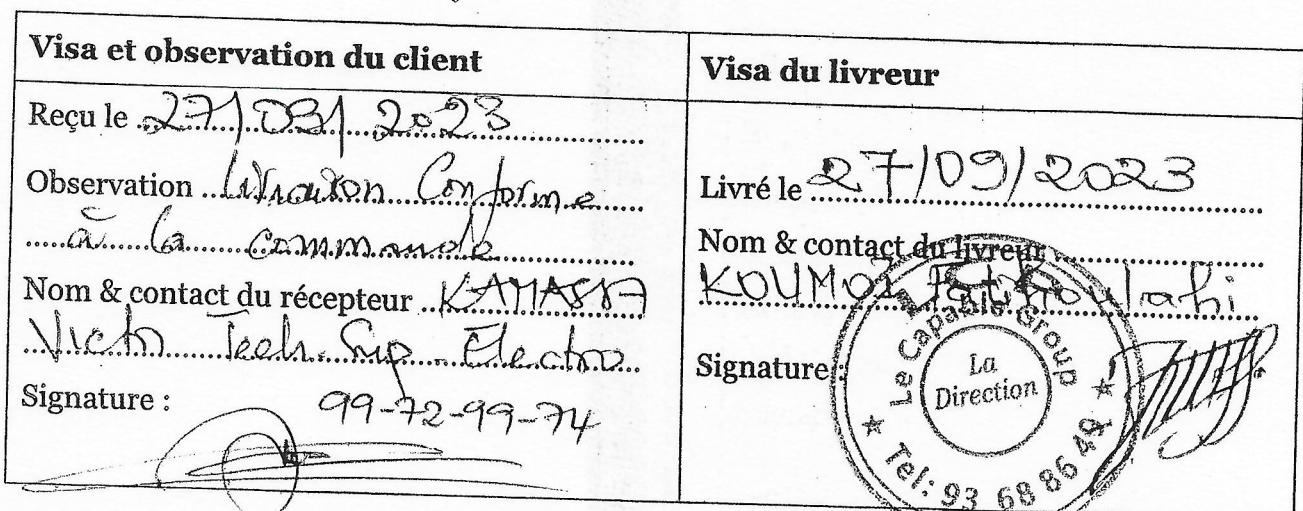 Visa et observation du client
Reçu le 27/09/2023
Observation Livraison Conforme
à la commande
Nom & contact du récepteur KAMASSA
Victo Tech Sup Electro
Signature : 99-72-99-74
Visa du livreur
Livré le 27/09/2023
Nom & contact du livreur
KOUMOI Fathoulahi
Signature :
Le Capable Group
La
Direction
Tel: 93 68 86 49